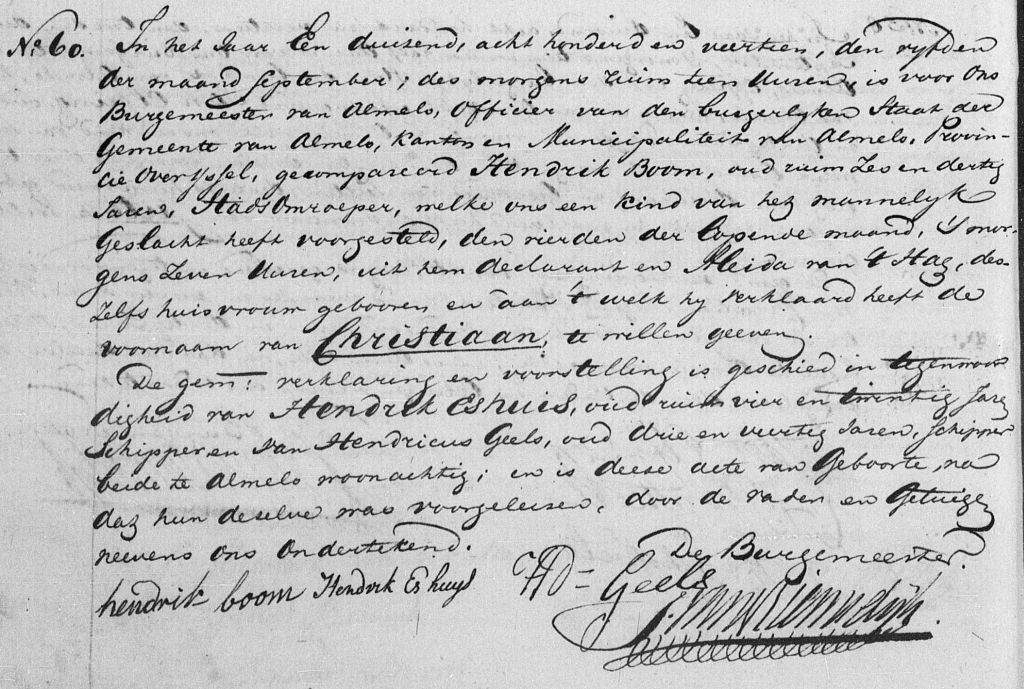 No 60. In het Jaar Een duisend, acht honderd en veertien, den vyfden
der maand September; des morgens ruim tien Uuren, is voor Ons
Burgemeester van Almelo, Officier van den burgerlyken Staat der
Gemeente van Almelo, Kanton en Municipaliteit van Almelo, Provin-
cie Overyssel, gecompareerd Hendrik Boom, oud ruim Zes en dertig
Jaren, Stads Omroeper, welke ons een kind van het mannelyk
Geslacht heeft voorgesteld, den vierden der lopende maand, 's mor-
gens Zeven Uuren, uit hem declarant en Aleida van 't Hag, des-
Zelfs huisvrouw gebooren en aan 't welk hy verklaard heeft de
voornaam van Christiaan, te willen geeven.
De gem: verklaring en voorstelling is geschied in tegenwoor
digheid van Hendrik Eshuis, oud ruim vier en twintig Jaren
Schipper en van Hendricus Geels, oud drie en veertig Jaren, Schipper
beide te Almelo woonachtig; en is deese acte van Geboorte, na
dat hun deselve was voorgeleisen, door de vader en Getuigen
neevens ons Ondertekend.
De Burgemeester.
hendrik boom Hendrik Eshuys HD= Geels